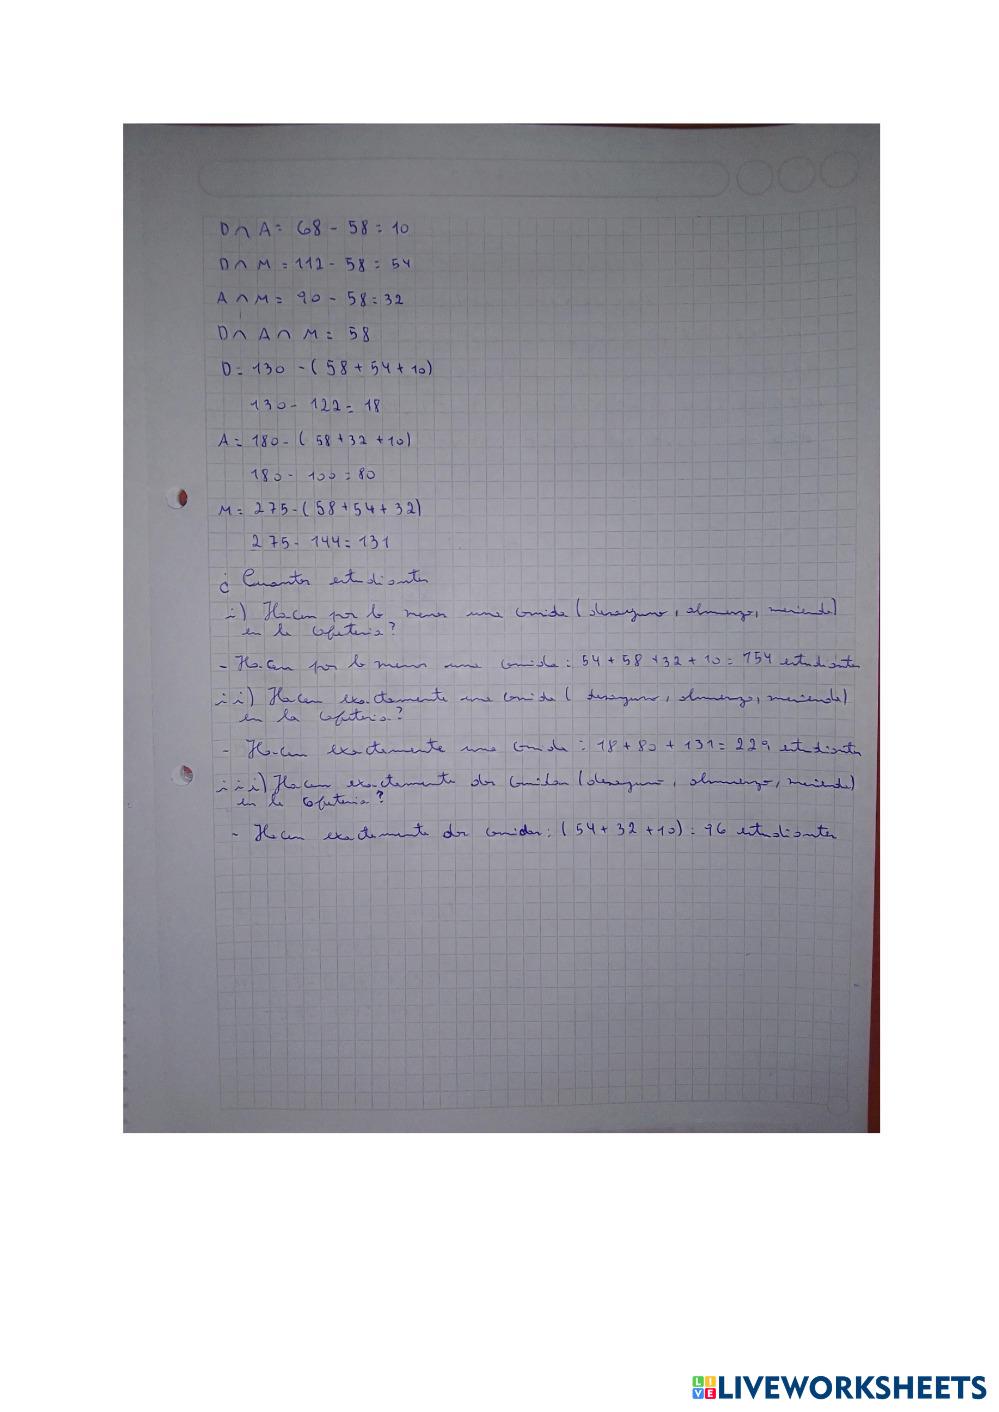 D∩ A= 68 - 58 = 10
D∩ M = 112 - 58 = 54
A ∩ M = 90 - 58 = 32
D∩ A∩ M = 58
D= 130 - ( 58 + 54 + 10)
130 - 122 = 18
A = 180 - ( 58 + 32 + 10)
180 - 100 = 80
M = 275 - ( 58 + 54 + 32)
275 - 144 = 131
¿ Cuantos estudiantes
i) Hacen por lo menos una comida ( desayuno, almuerzo, merienda)
en la cafeteria?
- Hacen por lo menos una comida : 54 + 58 + 32 + 10 = 154 estudiantes
ii) Hacen exactamente una comida ( desayuno, almuerzo, merienda)
en la cafeteria?
- Hacen exactamente una comida : 18 + 80 + 131 = 229 estudiantes
iii) Hacen exactamente dos comidas ( desayuno, almuerzo, merienda)
en la cafeteria?
- Hacen exactamente dos comidas : ( 54 + 32 + 10) = 96 estudiantes
LIVE LIVEWORKSHEETS